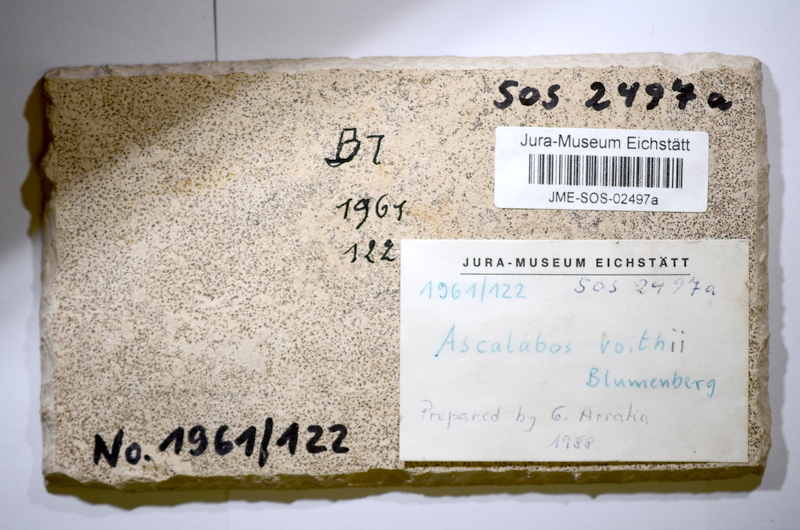 SOS 2497a
B7
1961
122
Jura-Museum Eichstätt
JME-SOS-02497a
JURA-MUSEUM EICHSTÄTT
1961/122 SOS 2497a
Ascalabos voithii
Blumenberg
Prepared by G. Arraha
1988
No. 1961/122